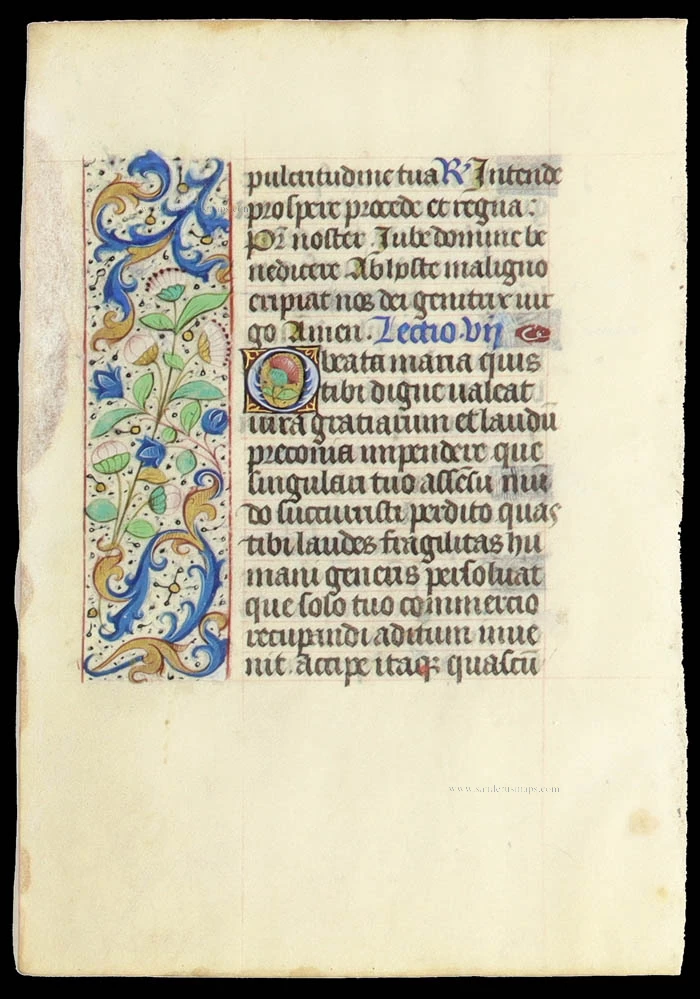 pulcritudine tua R̸ Intende
prospere procede et regna :
Pr̄ noster Iube domine be
nedicere Ab hoste maligno
eripiat nos dei genitrix vir
go Amen. Lectio vii
O beata maria quis
tibi digne ualeat
iura gratiarum et laudū
preconia impendere que
singulari tuo assēsu mū
do succuristi perdito quas
tibi laudes fragilitas hu
mani generis persoluat
que solo tuo commercio
recuperandi aditum inue
nit. Accipe itaq; quascū
www.sanderusmaps.com